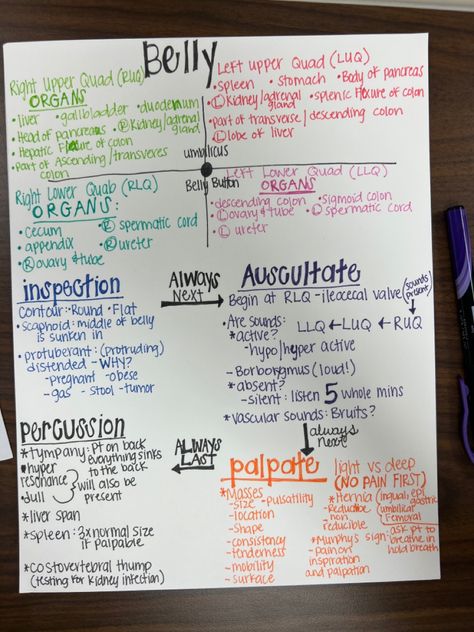 Belly
Right Upper Quad (RUQ)
ORGANS
•liver •gallbladder •duodenum
•Head of pancreas •Ⓡ Kidney/adrenal gland
•Hepatic Flexure of colon
•Part of Ascending/transveres colon
Left Upper Quad (LUQ)
•spleen •stomach •Body of pancreas
•Ⓛ Kidney/adrenal gland •splenic Flexure of colon
•part of transverse/descending colon
•Ⓛ lobe of liver
umbilicus
Belly Button
Right Lower Quab (RLQ)
ORGANS:
•cecum •Ⓡ spermatic cord
•appendix •Ⓡ ureter
•Ⓡ ovary & tube
Left Lower Quad (LLQ)
ORGANS
•descending colon •sigmoid colon
•Ⓛ ovary & tube •Ⓛ spermatic cord
•Ⓛ ureter
inspection
Contour: •Round •Flat
•scaphoid: middle of belly
is sunken in
•protuberant: (protruding)
distended -WHY?
-pregnant -obese
-gas -stool -tumor
ALWAYS
Next
Auscultate
Begin at RLQ -ileocecal valve (sounds present)
•Are sounds: LLQ ← LUQ ← RUQ
*active?
-hypo/hyper active
-Borborygmus (loud!)
*absent?
-silent: listen 5 whole mins
*vascular sounds: Bruits?
always
next
palpate
light vs deep
(NO PAIN FIRST)
*Masses
-size -pulsatility
-location
-shape
-consistency
-tenderness
-mobility
-surface
*Hernia (ingual, epigastric
umbilical
Femoral
-Reducible
-non
reducible
*Murphy's sign: ask pt to
breathe in
hold breath
-pain on
inspiration
and palpation
ALWAYS
LAST
percussion
*tympany: Pt on back
everything sinks
to the back
*hyper
resonance
*dull
will also be
present
*liver span
*spleen: 3x normal size
if palpable
*costovertebral thump
(testing for kidney infection)